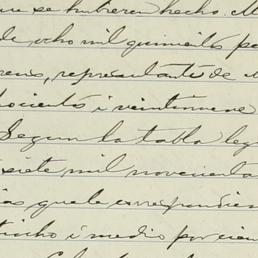 que se hubieren hecho. M
de ocho mil quinientos pe
representante de
ocientos i veintinueve
Segun la tabla leg
siete mil novecienta
que la correspondien
tiocho i medio por cien